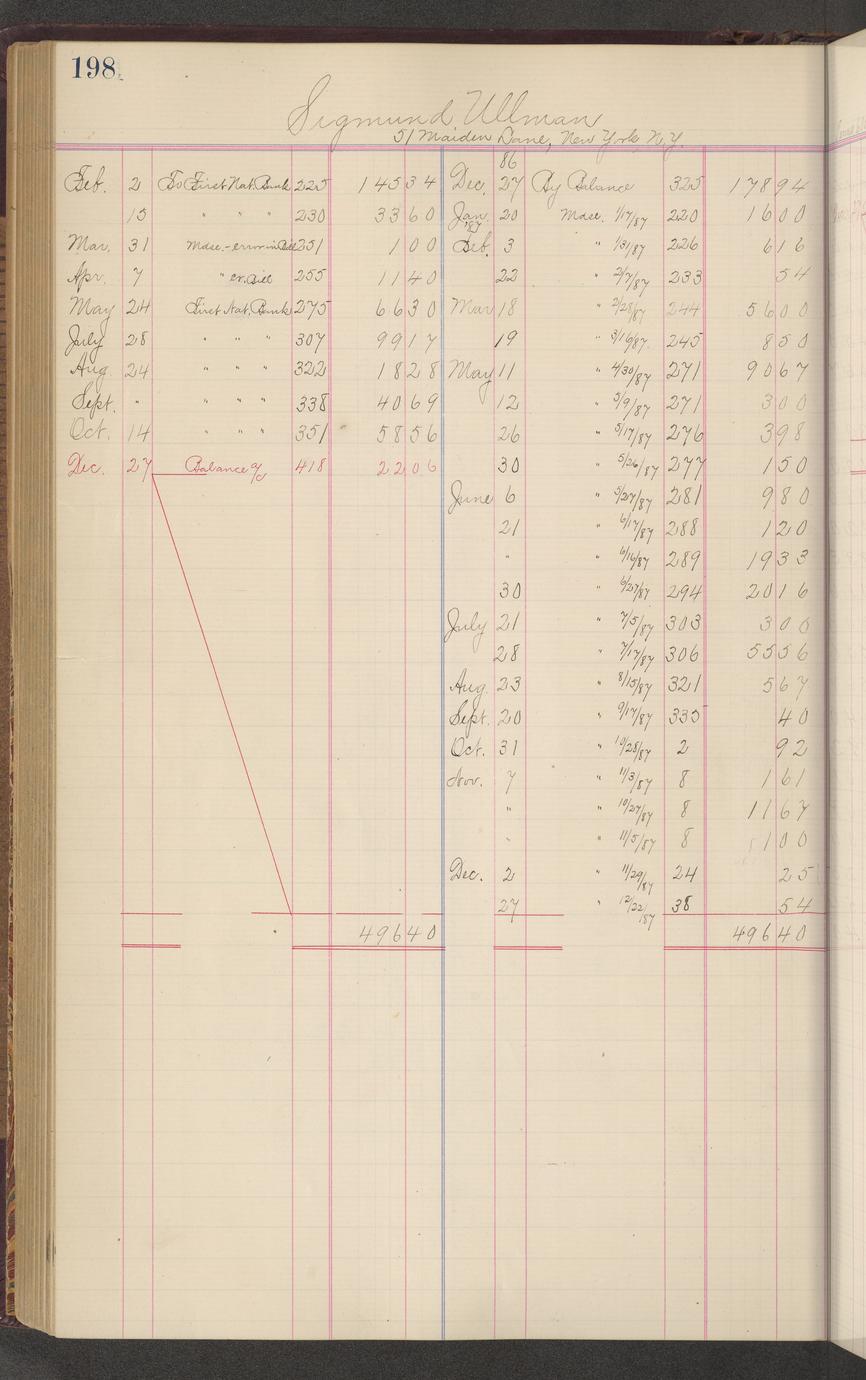 198.
Sigmund Ullman
51 Maiden Lane, New York N.Y.
86
Feb. 2 To First Nat. Bank 225 145 34 Dec. 27 By Balance 325 178 94
15 " " " 230 33 60 Jan. 20 Mdse. 1/17/87 220 16 00
'87
Mar. 31 Mdse.-error in Bill 251 1 00 Feb. 3 " 1/31/87 226 6 16
Apr. 7 " er. Bill 255 11 40 22 " 2/7/87 233 54
May 24 First Nat. Bank 275 66 30 Mar 18 " 2/28/87 244 56 00
July 28 " " " 307 99 17 19 " 3/16/87. 245 8 50
Aug. 24 " " " 322 18 28 May 11 " 4/30/87 271 90 67
Sept. " " " " 338 40 69 12 " 5/9/87 271 3 00
Oct. 14 " " " 351 58 56 26 " 5/17/87 276 3 98
Dec. 27 Balance a/c 418 22 06 30 " 5/26/87 277 1 50
June 6 " 5/27/87 281 9 80
21 " 6/17/87 288 1 20
" " 6/16/87 289 19 33
30 " 6/27/87 294 20 16
July 21 " 7/5/87 303 3 00
28 " 7/17/87 306 55 56
Aug. 23 " 8/15/87 321 5 67
Sept. 20 " 9/17/87 335 40
Oct. 31 " 10/28/87 2 92
Nov. 7 " 11/3/87 8 1 61
" " 10/27/87 8 11 67
" " 11/5/87 8 1 00
Dec. 2 " 11/29/87 24 25
27 " 12/22/87 38 54
496 40 496 40